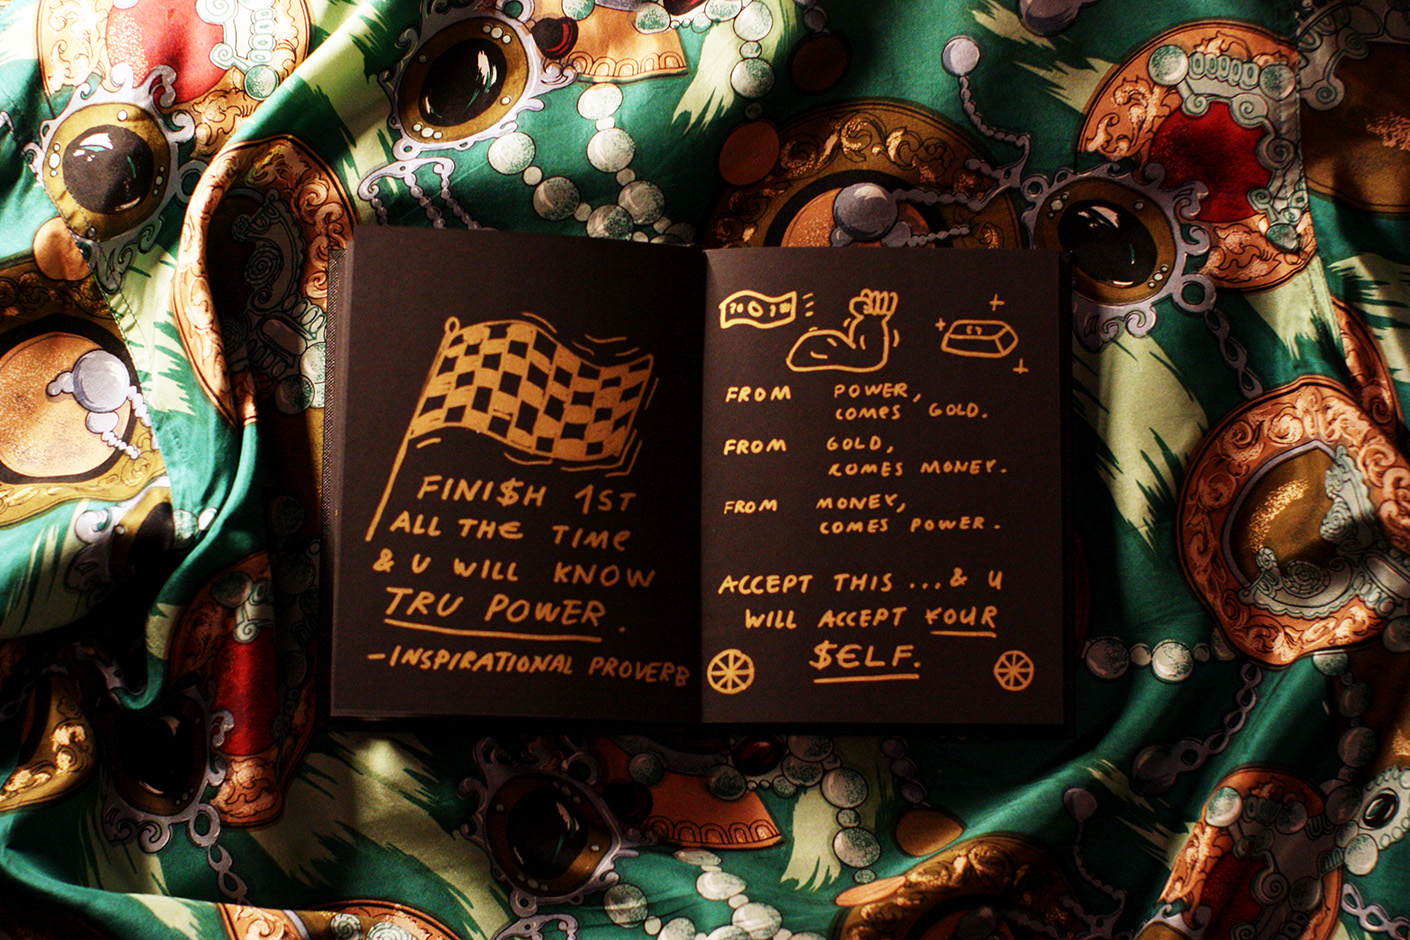 FINI$H 1ST
ALL THE TIME
& U WILL KNOW
TRU POWER.
-INSPIRATIONAL PROVERB
FROM POWER,
COMES GOLD.
FROM GOLD,
COMES MONEY.
FROM MONEY,
COMES POWER.
ACCEPT THIS ...& U
WILL ACCEPT YOUR
$ELF.